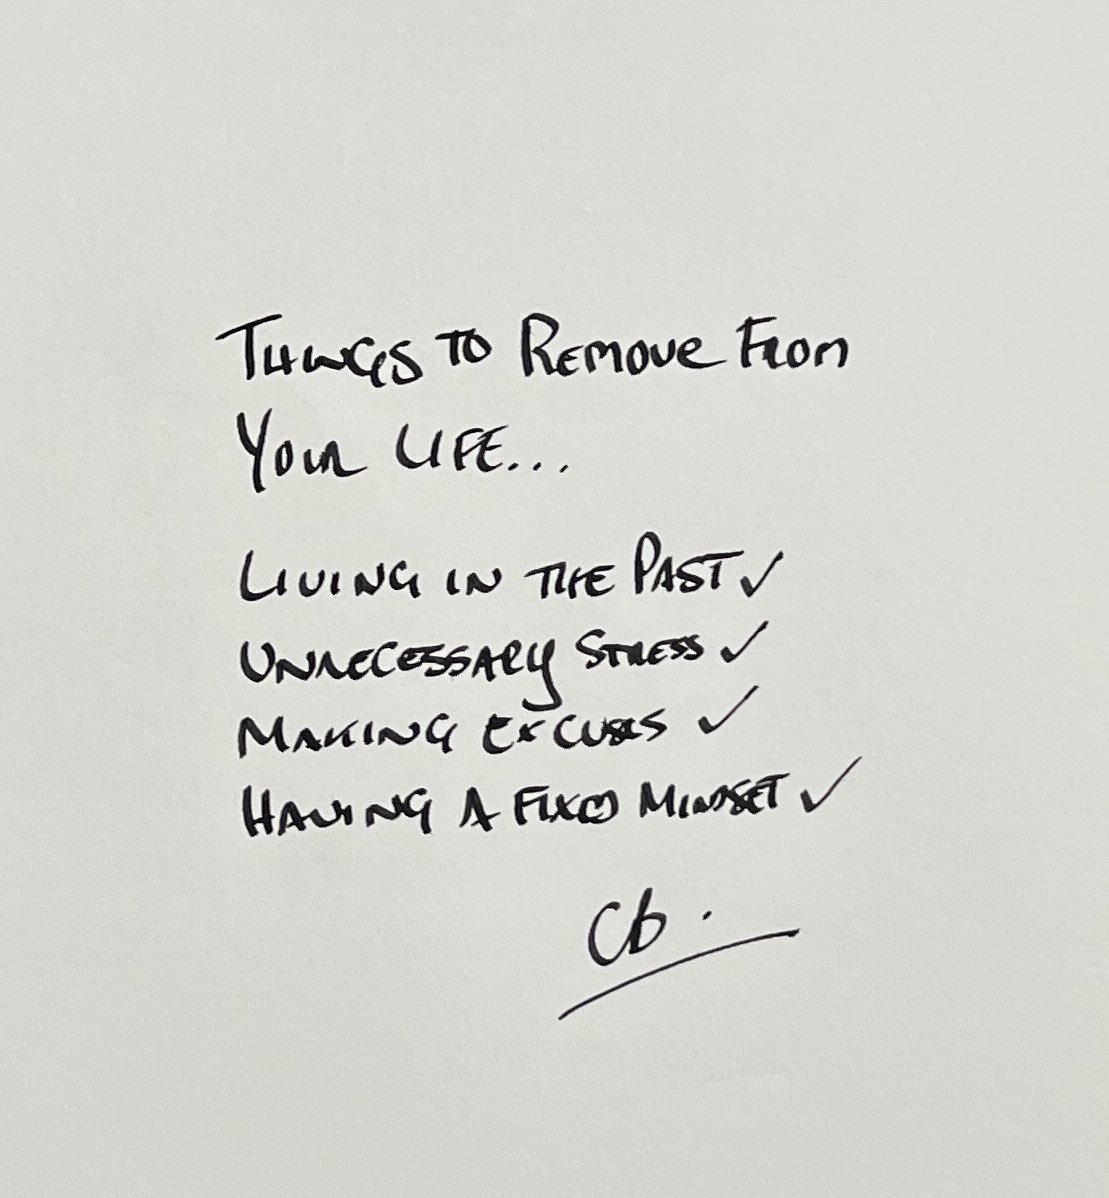 Things to Remove From
Your Life...
Living in the Past ✓
Unnecessary Stress ✓
Making Excuses ✓
Having a Fixed Mindset ✓
Cb.